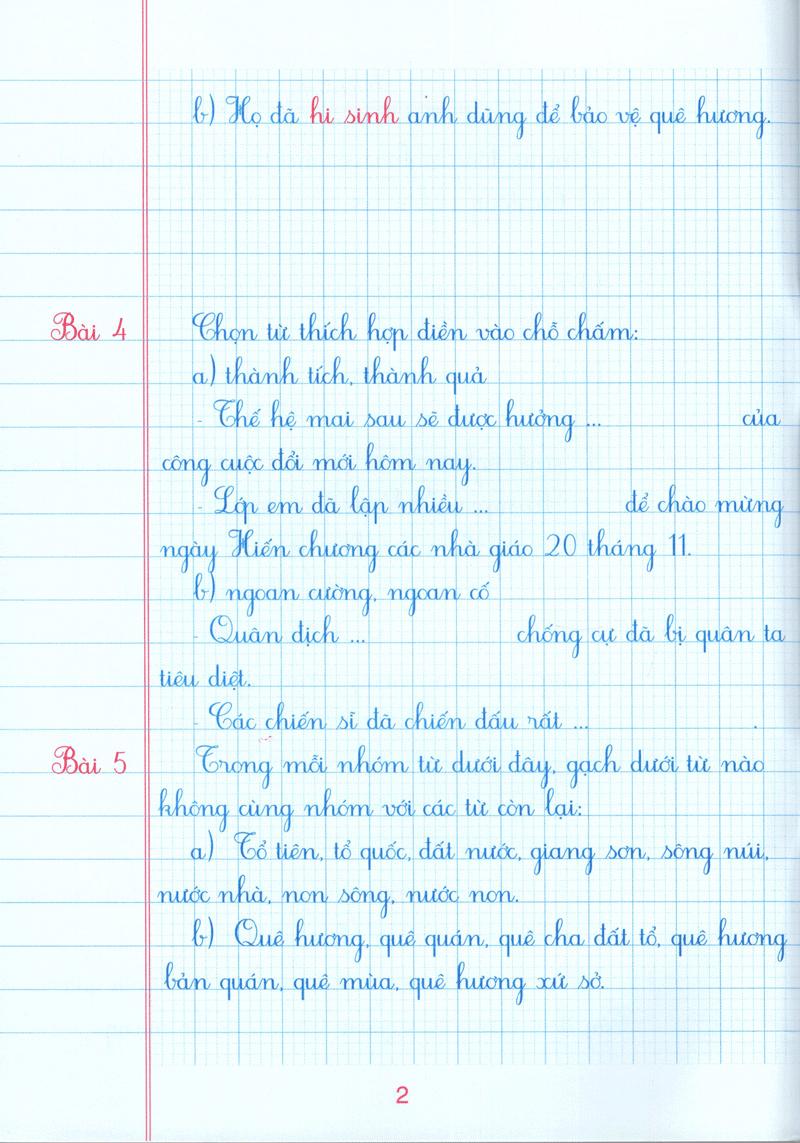 b) Họ đã hi sinh anh dũng để bảo vệ quê hương.
Bài 4 Chọn từ thích hợp điền vào chỗ chấm:
a) thành tích, thành quả
- Thế hệ mai sau sẽ được hưởng ... của
công cuộc đổi mới hôm nay.
- Lớp em đã lập nhiều ... để chào mừng
ngày Hiến chương các nhà giáo 20 tháng 11.
b) ngoan cường, ngoan cố
- Quân địch ... chống cự đã bị quân ta
tiêu diệt.
- Các chiến sĩ đã chiến đấu rất ... .
Bài 5 Trong mỗi nhóm từ dưới đây, gạch dưới từ nào
không cùng nhóm với các từ còn lại:
a) Tổ tiên, tổ quốc, đất nước, giang sơn, sông núi,
nước nhà, non sông, nước non.
b) Quê hương, quê quán, quê cha đất tổ, quê hương
bản quán, quê mùa, quê hương xứ sở.
2